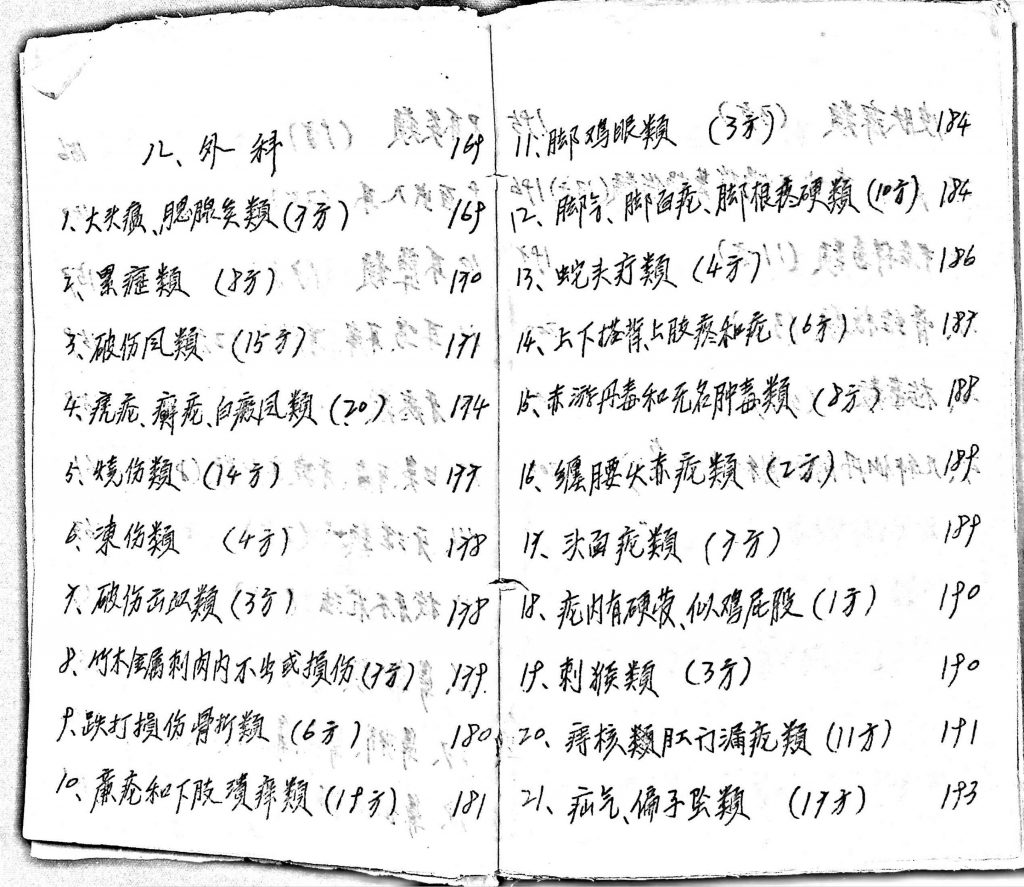 八、外科 169
1、大头瘟、腮腺炎類(7方) 169
2、累癧類 (8方) 170
3、破伤风類 (15方) 171
4、疣疮、癣疮、白癜风類(20) 174
5、燒伤類 (14方) 177
6、凍伤類 (4方) 178
7、破伤出血類(3方) 178
8、竹木金属刺肉内不出或損伤(7方) 179
9、跌打損伤骨折類 (6方) 180
10、臁疮和下肢溃瘍類(19方) 181
11、脚鸡眼類 (3方) 184
12、脚、脚面疮、脚根疼硬類(10方) 184
13、蛇头疔類 (4方) 186
14、上下搭背上肢疼和疮 (6方) 187
15、赤游丹毒和无名肿毒類 (8方) 188
16、缠腰火赤疮類 (2方) 189
17、头面疮類 (7方) 189
18、疮内有硬、似鸡屁股 (1方) 190
19、刺猴類 (3方) 190
20、痔核類肛门漏疮類 (11方) 191
21、疝气、偏子坠類 (17方) 193